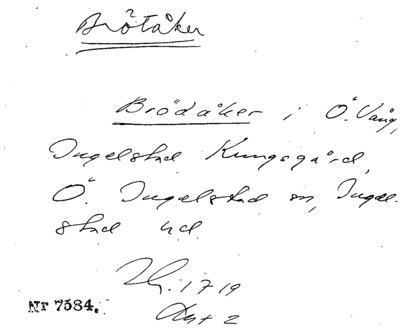 Brötåker
Brödåker i Ö. Vång,
Ingelstad Kungsgård,
Ö. Ingelstad sn, Ingel-
stad hd.
1719
Akt 2
Nr 7584.